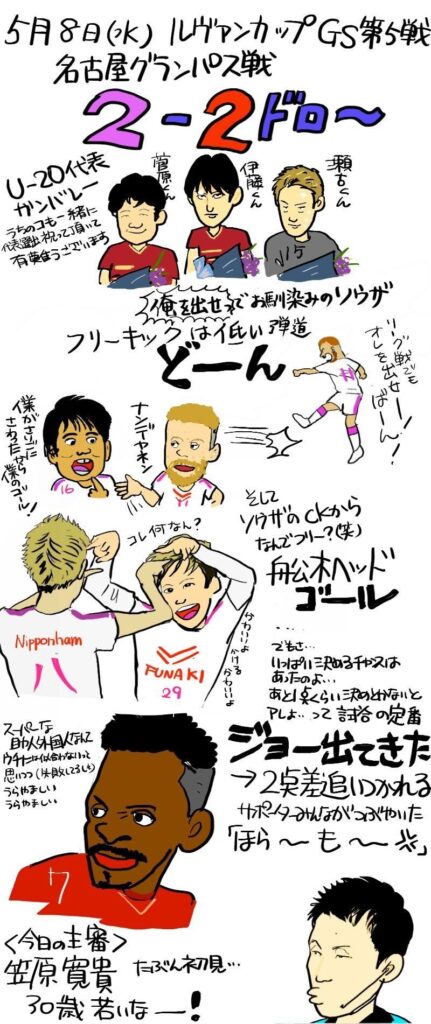 5月8日(水) ルヴァンカップGS第5戦
名古屋グランパス戦
2-2ドロ〜
U-20代表
ガンバレー
うちのコも一緒に
代表選出祝って頂いて
有難うございます
菅原くん
伊藤くん
瀬古くん
俺を出せ でお馴染みのソウザ
フリーキックは低い弾道
どーん
リーグ戦でも
オレを出せー!
ばーん!
僕がさいごに
さわったから
僕のゴール!
ナンデヤネン
16
コレ何なん?
そして
ソウザのCKから
なんでフリー?(笑)
舩木ヘッド
ゴール
Nipponham
八
FUNAKI
29
かわいいよ
かける
かわいいよ
でもさ…
いっぱい決めるチャンスは
あったのよ…
あと1点くらい決めとかないと
アレよ…って試合の定番
ジョー出てきた
→2点差追いつかれる
サポーターみんながつぶやいた
「ほら〜も〜」
スーパーな
助っ人外国人なんて
ウチには似合わないって
思いつつ
うらやましい
うらやましい
7
<今日の主審>
笠原寛貴 たぶん初見…
30歳 若いなー!